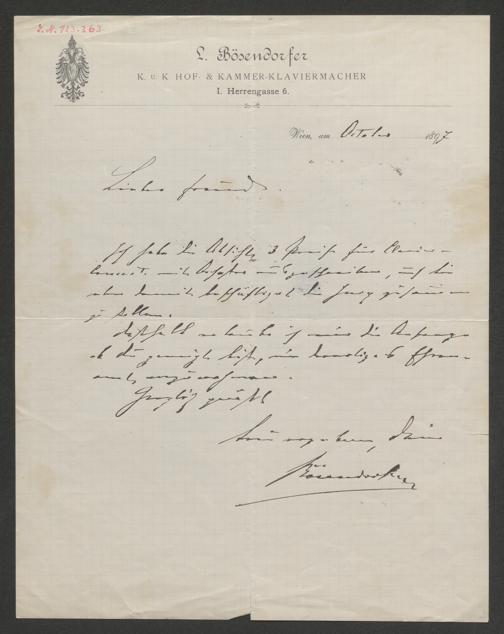 I.N. 123.363
L. Bösendorfer
K. u. K HOF- & KAMMER-KLAVIERMACHER
I. Herrengasse 6.
Wien, am October 1897
Lieber Freund
Ich habe die Absicht 3 Preise für Clavier-
concert mit Orchester auszuschreiben, und bin
eben damit beschäftigt die Jury zusammen
zu stellen.
Deßhalb erlaube ich mir die Anfrage
ob Du geneigt bist, ein derartiges Ehren-
amt anzunehmen.
Herzlich grüßt
treu ergeben, Dein
Bösendorfer